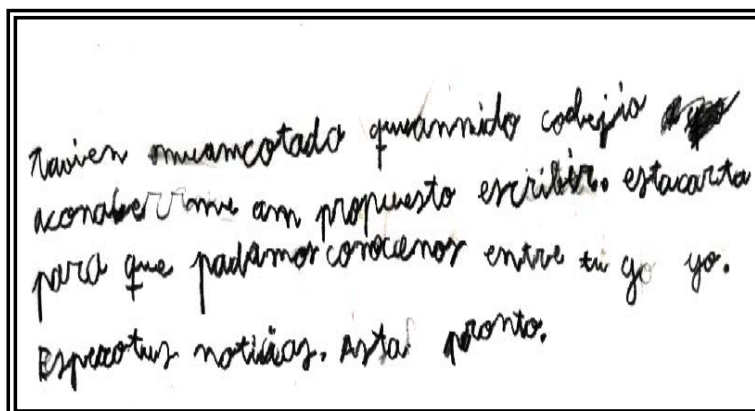 tavien mueamcotado queannido codejio
aconaberrme am propuesto escribir. estacarta
para que padamos conocenos entre tu yo yo.
Esperotus noticias. Asta pronto.